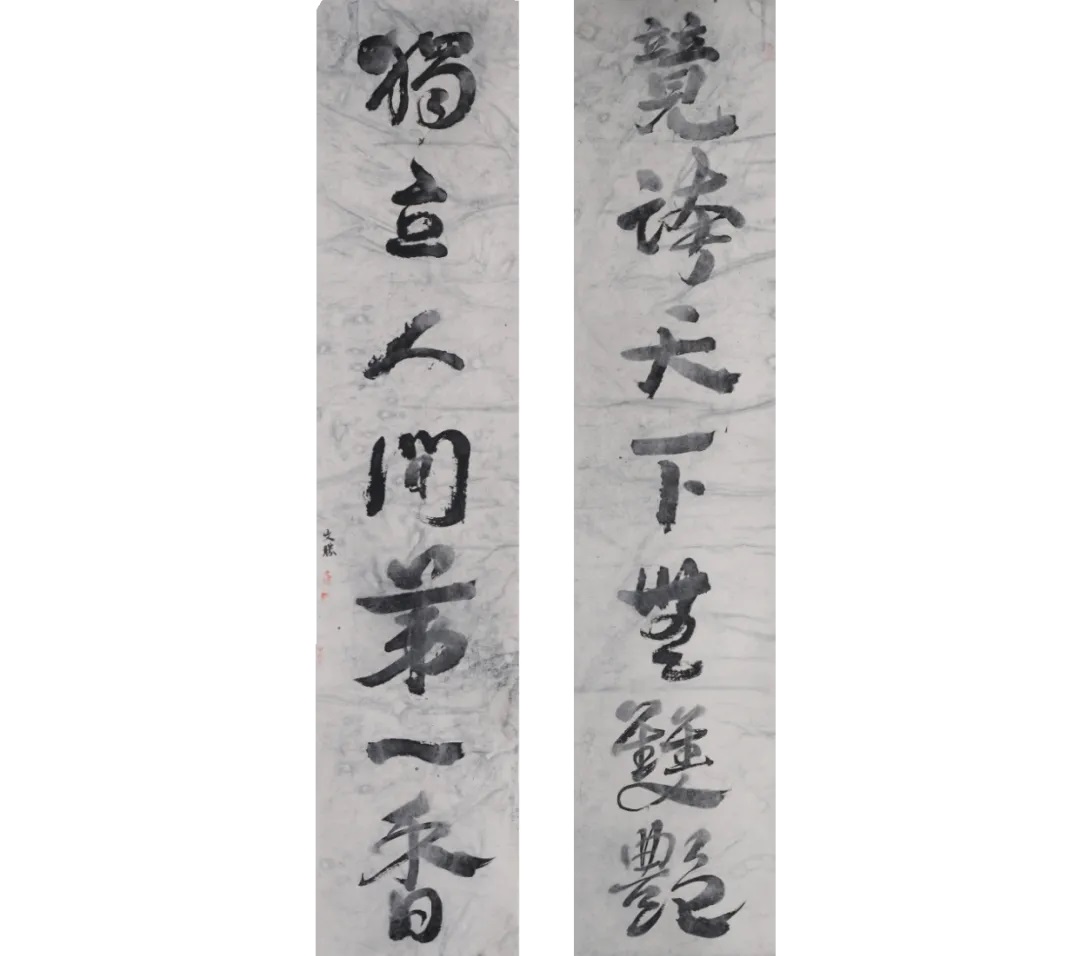 競誇天下無雙艷
獨立人間第一香